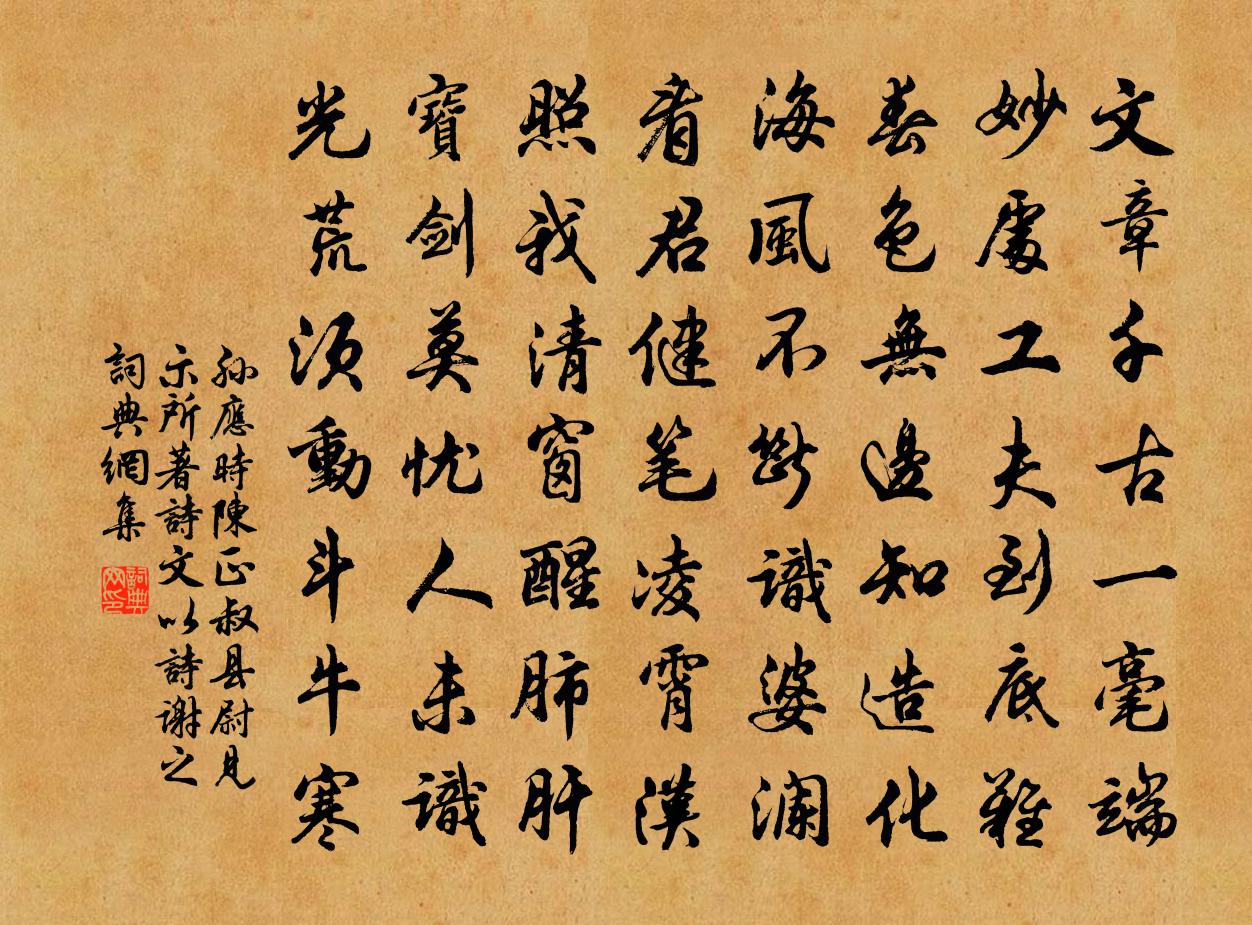 文章千古一毫端
妙處工夫到底難
春色無邊知造化
海風不斷識婆澜
看君健笔凌霄漢
照我清窗醒肺肝
寶劍莫忧人未識
光荒須動斗牛寒
孙應時陳正叔县尉見
示所著詩文以詩谢之
詞典網集
詞典网印